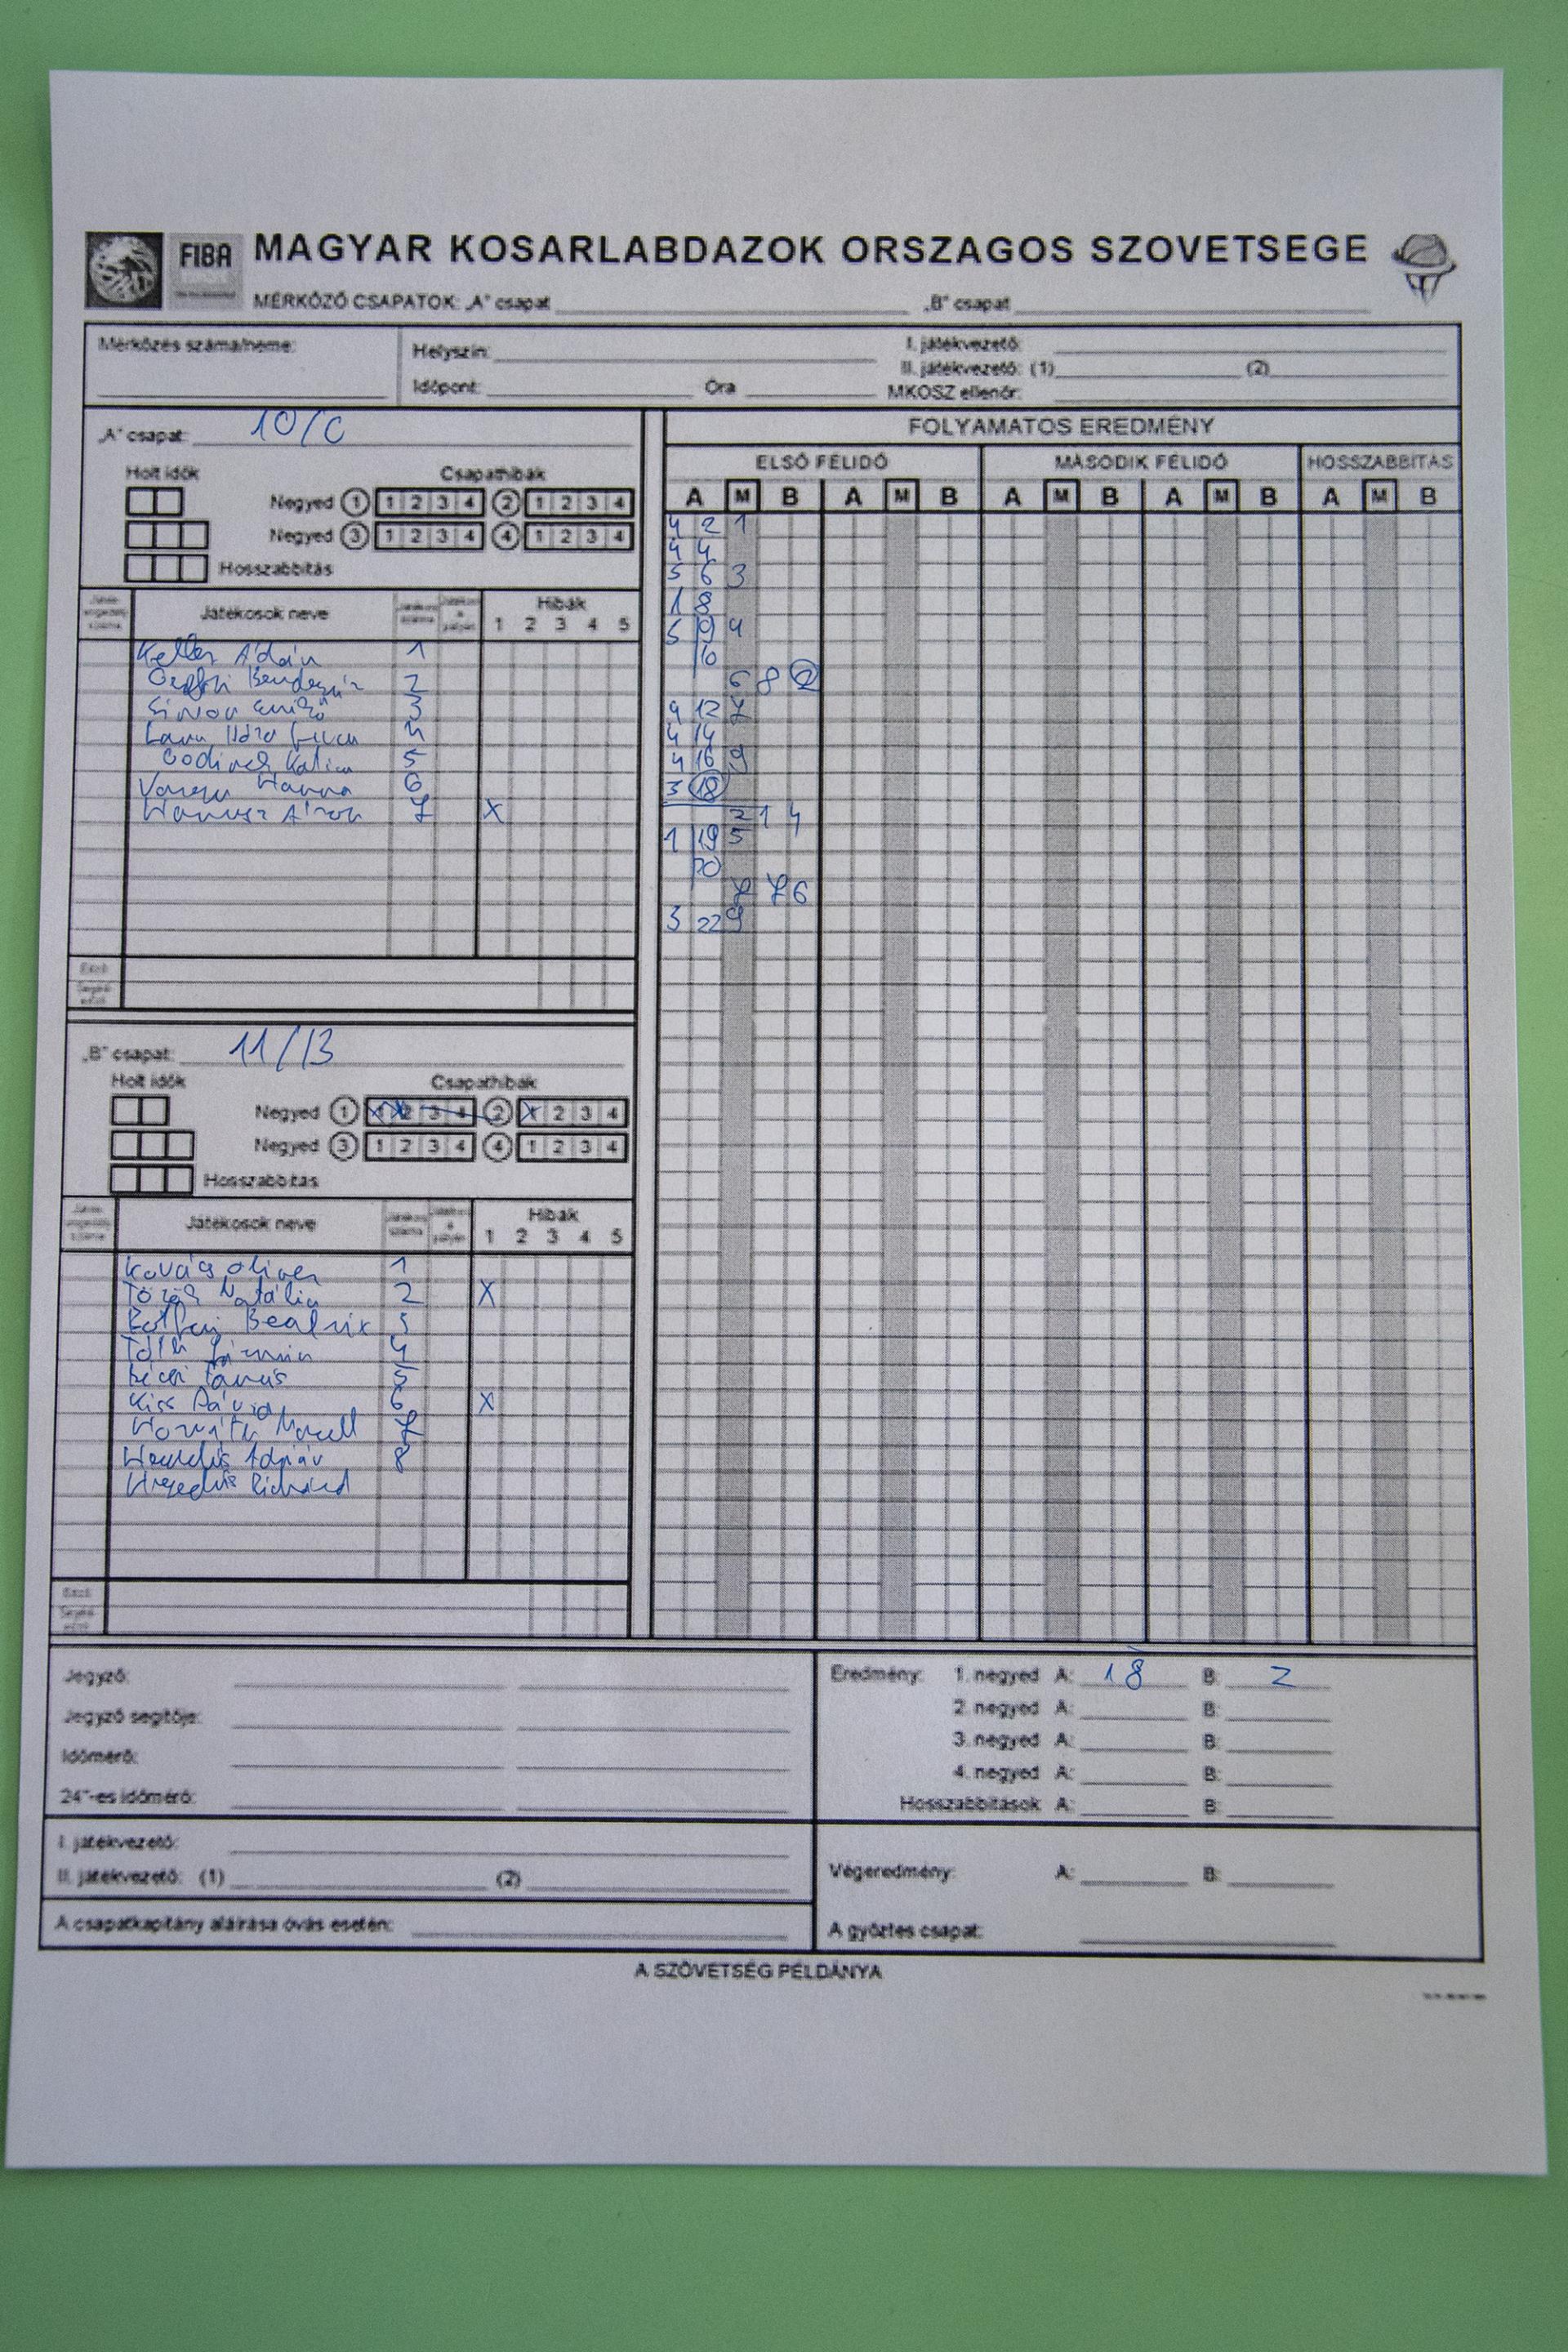 FIBA MAGYAR KOSARLABDAZOK ORSZAGOS SZOVETSEGE
MÉRKŐZŐ CSAPATOK: „A" csapat „B" csapat
Mérkőzés száma/neme:
Helyszín:
Időpont: Óra
I. játékvezető:
II. játékvezető: (1) (2)
MKOSZ ellenőr:
„A" csapat: 10/C
Holt idők Csapathibák
Negyed 1 1 2 3 4 2 1 2 3 4
Negyed 3 1 2 3 4 4 1 2 3 4
Hosszabbítás
Játékosok neve Hibák
1 2 3 4 5
Keller Ádán 1
2
Simon Enikő 3
4
Kalina 5
Hanna 6
Áron 7 X
FOLYAMATOS EREDMÉNY
ELSŐ FÉLIDŐ MÁSODIK FÉLIDŐ HOSSZABBÍTÁS
A M B A M B A M B A M B A M B
4 2 1
4 4
5 6 3
1 8
5 9 4
10
6 8 2
4 12 7
4 14
4 16 9
3 18
2 1 4
1 19 5
20
7 7 6
3 22 9
„B" csapat: 11/B
Holt idők Csapathibák
Negyed 1 1 2 3 4 2 X 2 3 4
Negyed 3 1 2 3 4 4 1 2 3 4
Hosszabbítás
Játékosok neve Hibák
1 2 3 4 5
Kovács Oliver 1
Török Natália 2 X
Beatrix 3
Tóth 4
5
Kiss Dávid 6 X
Horváth Marcell 7
Adrián 8
Hegedűs Richárd
Jegyző:
Jegyző segítője:
Időmérő:
24"-es időmérő:
Eredmény: 1. negyed A: 18 B: 2
2. negyed A: B:
3. negyed A: B:
4. negyed A: B:
Hosszabbítások A: B:
I. játékvezető:
II. játékvezető: (1) (2)
A csapatkapitány aláírása óvás esetén:
Végeredmény: A: B:
A győztes csapat:
A SZÖVETSÉG PÉLDÁNYA